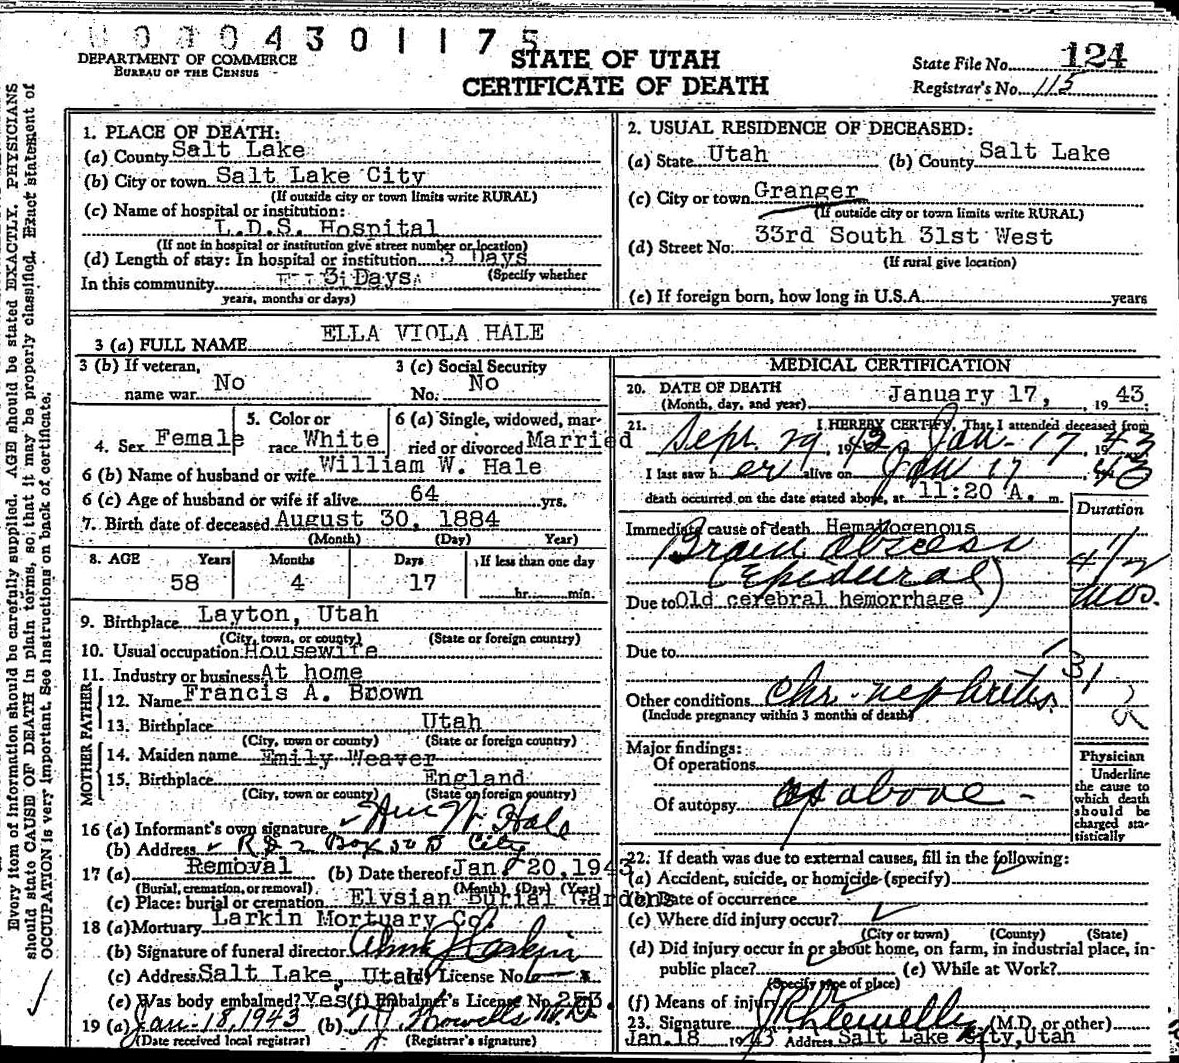 4301175
DEPARTMENT OF COMMERCE
BUREAU OF THE CENSUS
STATE OF UTAH
CERTIFICATE OF DEATH
State File No. 124
Registrar's No. 115
Every item of information should be carefully supplied. AGE should be stated EXACTLY. PHYSICIANS
should state CAUSE OF DEATH in plain terms, so that it may be properly classified. Exact statement of
OCCUPATION is very important. See instructions on back of certificate.
1. PLACE OF DEATH:
(a) County Salt Lake
(b) City or town Salt Lake City
(If outside city or town limits write RURAL)
(c) Name of hospital or institution:
L.D.S. Hospital
(If not in hospital or institution give street number or location)
(d) Length of stay: In hospital or institution 3 Days
(Specify whether
In this community 3 Days
years, months or days)
2. USUAL RESIDENCE OF DECEASED:
(a) State Utah (b) County Salt Lake
(c) City or town Granger
(If outside city or town limits write RURAL)
(d) Street No. 33rd South 31st West
(If rural give location)
(e) If foreign born, how long in U.S.A. years
3 (a) FULL NAME ELLA VIOLA HALE
3 (b) If veteran, name war No
3 (c) Social Security No. No
4. Sex Female
5. Color or race White
6 (a) Single, widowed, married or divorced Married
6 (b) Name of husband or wife William W. Hale
6 (c) Age of husband or wife if alive 64 yrs.
7. Birth date of deceased August 30, 1884
(Month) (Day) Year)
8. AGE Years Months Days If less than one day
58 4 17 hr. min.
9. Birthplace Layton, Utah
(City, town, or county) (State or foreign country)
10. Usual occupation Housewife
11. Industry or business At home
FATHER
12. Name Francis A. Brown
13. Birthplace Utah
(City, town or county) (State or foreign country)
MOTHER
14. Maiden name Emily Weaver
15. Birthplace England
(City, town or county) (State or foreign country)
16 (a) Informant's own signature Wm W Hale
(b) Address R D 2 Box City
17 (a) Removal (b) Date thereof Jan. 20, 1943
(Burial, cremation, or removal) (Month) (Day) (Year)
(c) Place: burial or cremation Elysian Burial Gardens
18 (a) Mortuary Larkin Mortuary Co.
(b) Signature of funeral director Larkin
(c) Address Salt Lake, Utah (d) License No.
(e) Was body embalmed? Yes (f) Embalmer's License No.
19 (a) Jan-18, 1943 (b) T.J. Howells M.D.
(Date received local registrar) (Registrar's signature)
MEDICAL CERTIFICATION
20. DATE OF DEATH January 17, 19 43
(Month, day, and year)
21. I HEREBY CERTIFY, That I attended deceased from
Sept. 29, 1942, Jan-17 1943
I last saw her alive on Jan 17 43
death occurred on the date stated above, at 11:20 A. m.
Duration
Immediate cause of death Hematogenous
Brain abscess
(Epidural)
4 1/2 mos.
Due to Old cerebral hemorrhage
Due to
Other conditions Chr. nephritis
(Include pregnancy within 3 months of death)
Major findings:
Of operations
Of autopsy as above -
Physician
Underline
the cause to
which death
should be
charged sta-
tistically
22. If death was due to external causes, fill in the following:
(a) Accident, suicide, or homicide (specify)
(b) Date of occurrence
(c) Where did injury occur?
(City or town) (County) (State)
(d) Did injury occur in or about home, on farm, in industrial place, in-
public place? (e) While at Work?
(Specify type of place)
(f) Means of injury
23. Signature (M.D. or other)
Jan. 18 1943 Address Salt Lake City, Utah